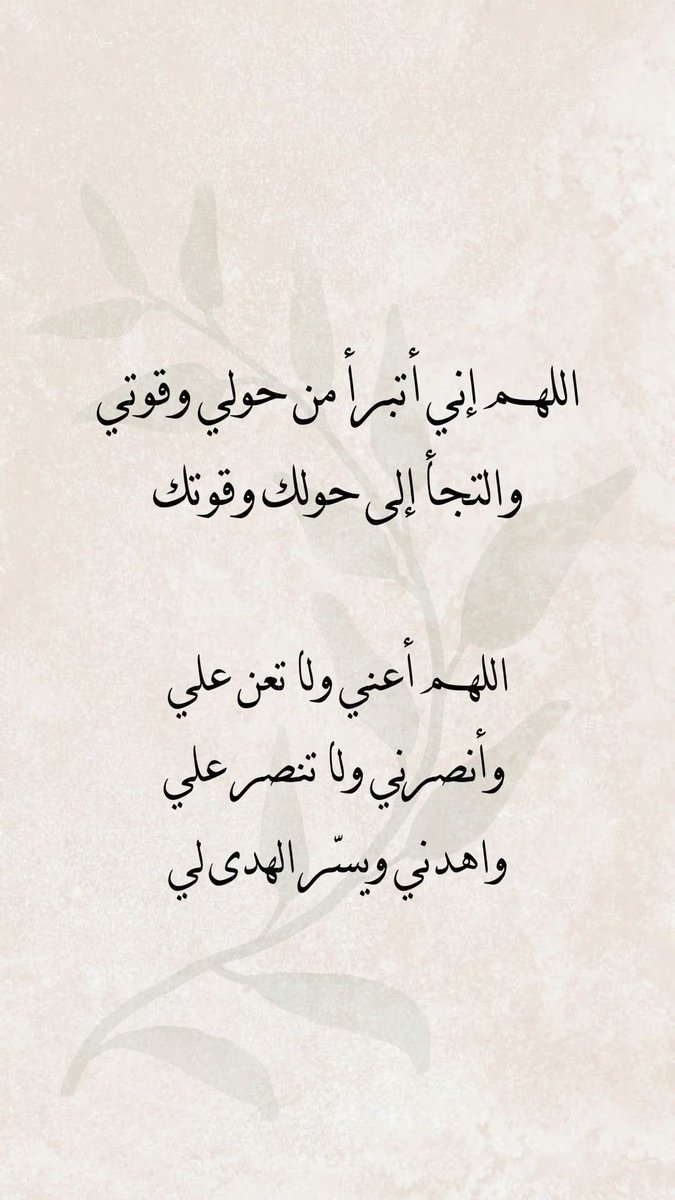 اللهم إني أتبرأ من حولي وقوتي
والتجأ إلى حولك وقوتك
اللهم أعني ولا تعن علي
وأنصرني ولا تنصر علي
واهدني ويسّر الهدى لي